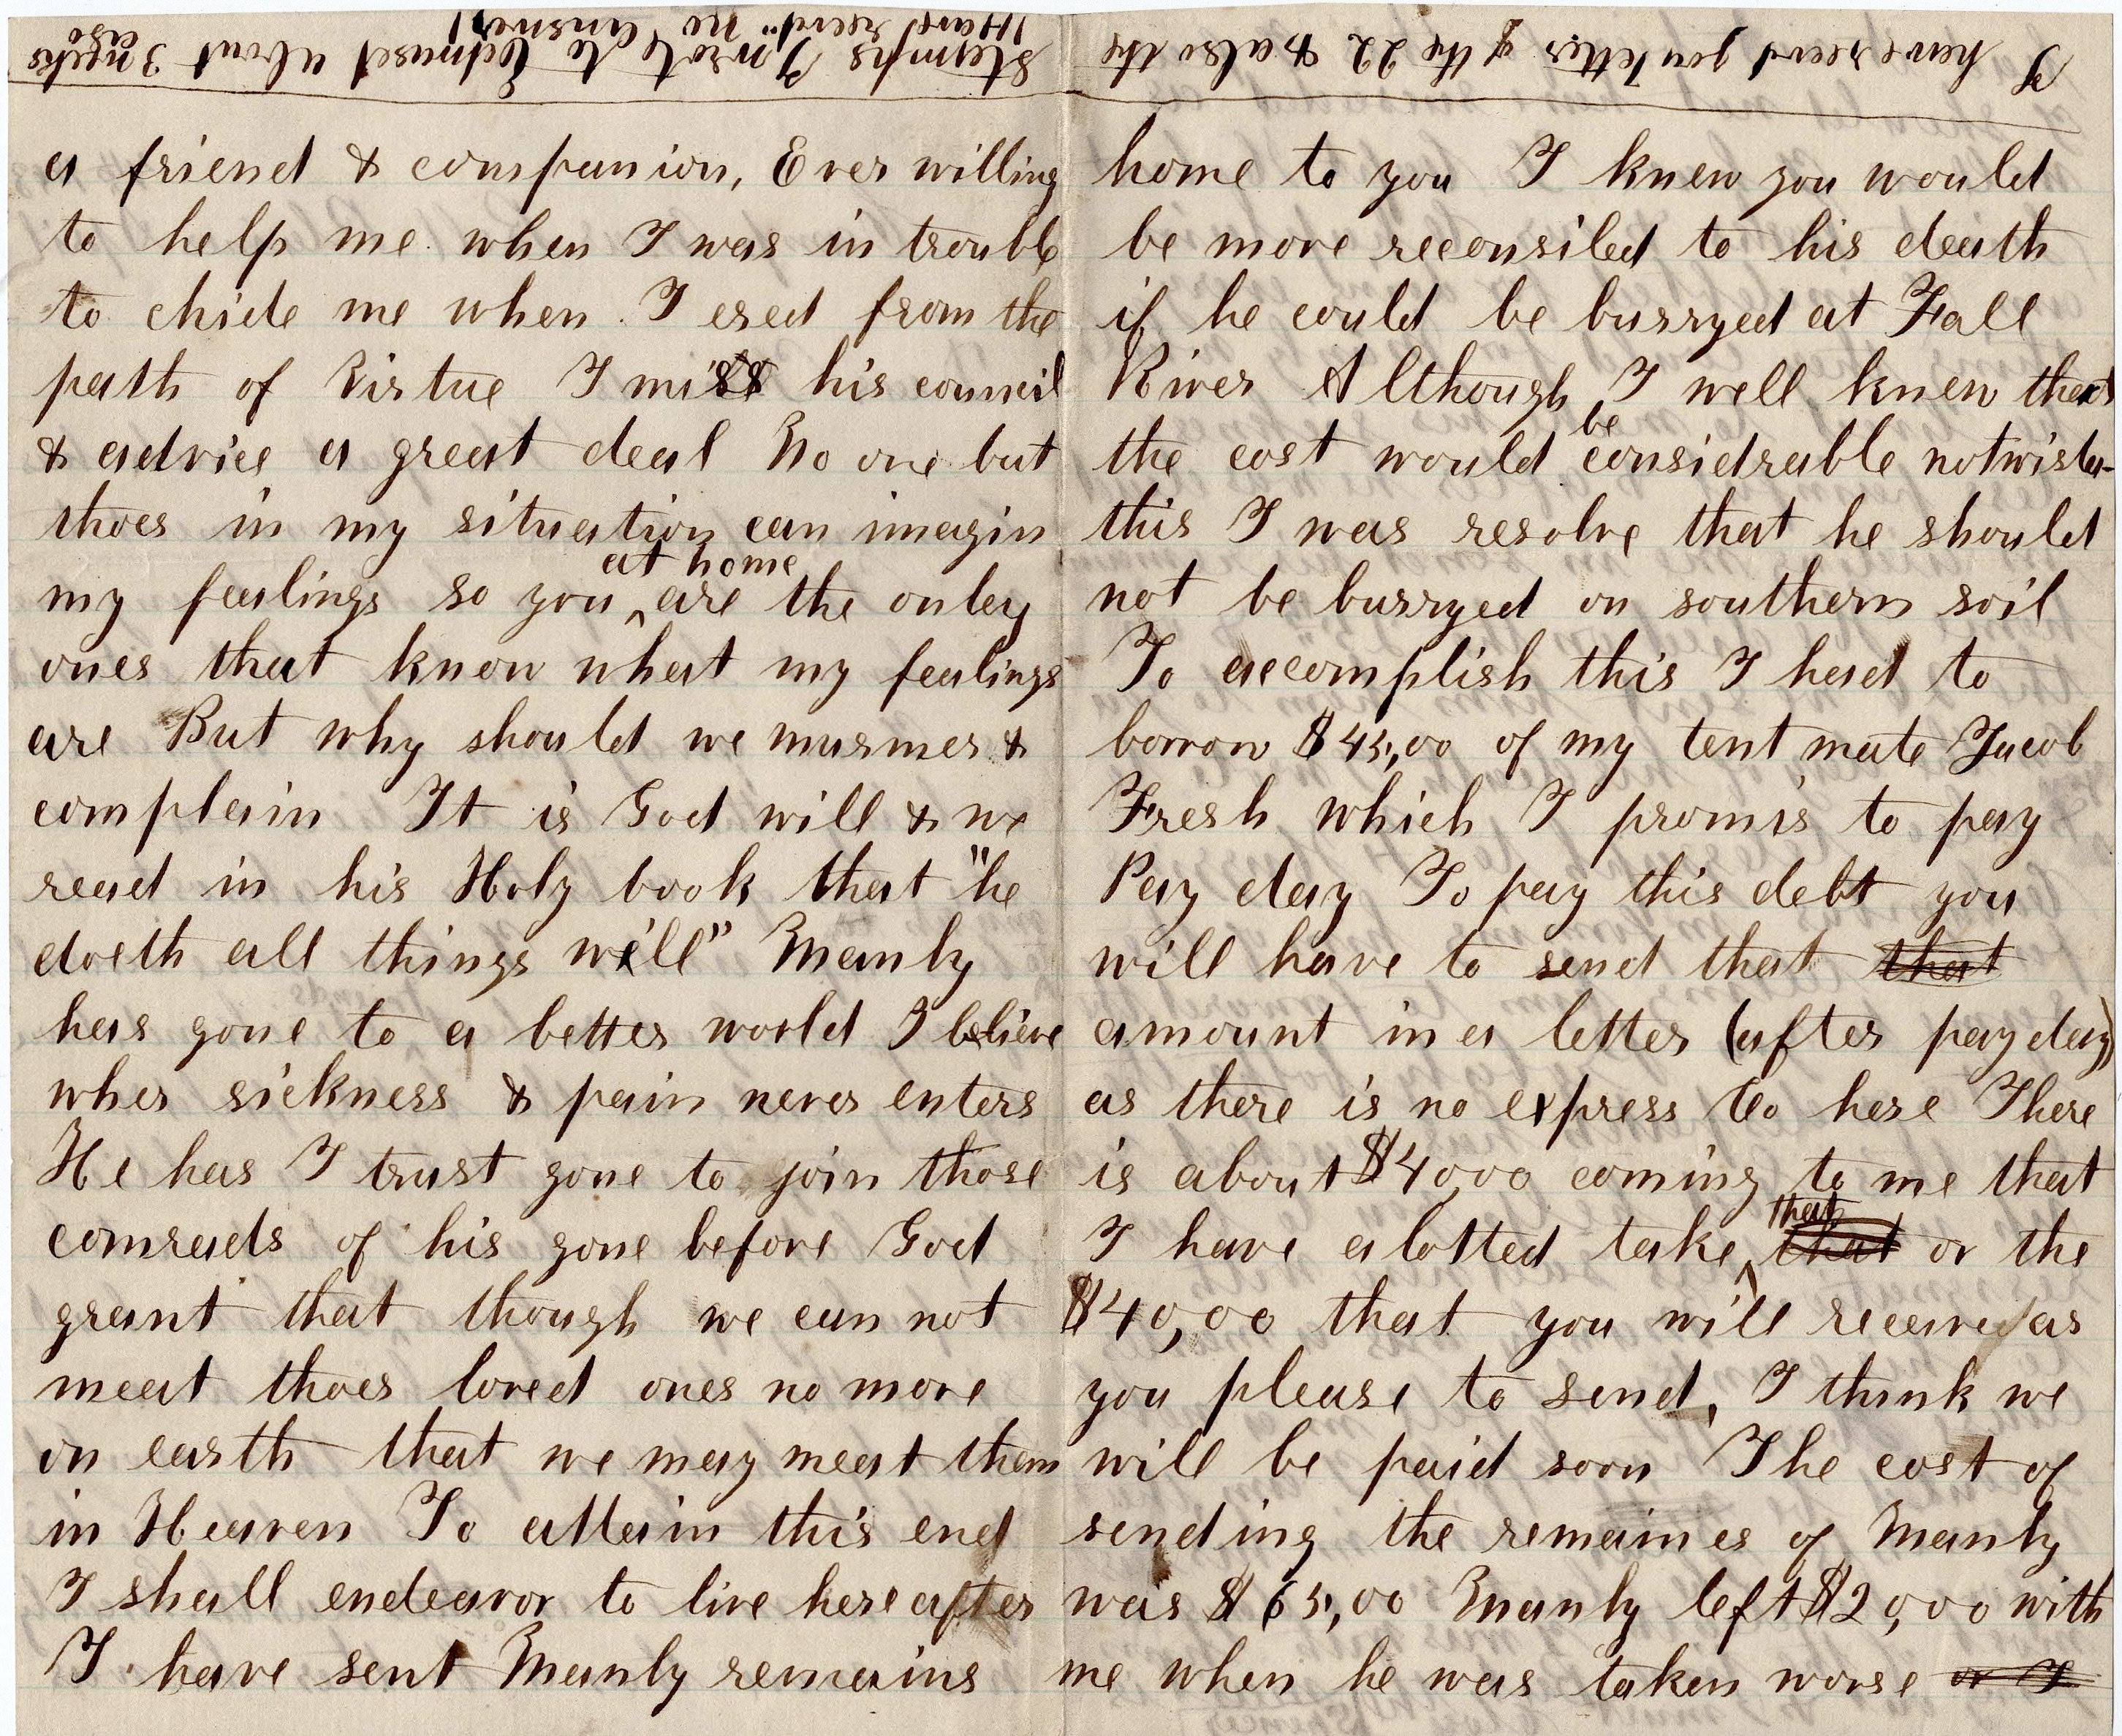 I have recevd you letter of the 22 & also the
stamps I wrote to Edmused about 3 weeks
ago
Have recevd no answer
a friend & companion, Ever willing
to help me when I was in troubl
to chide me when I ered from the
path of Virtue I miss his council
& advice a great deal No one but
thoes in my situation can imagin
my fealings so you at home are the onley
ones that know what my fealings
are But why should we murmer &
complain It is God will & we
read in his Holy book that "he
doeth all things well" Manly
has gone to a better world I believe
wher sickness & pain never enters
He has I trust gone to join those
comrads of his gone before God
grant that though we can not
meat thoes loved ones no more
on earth that we may meat them
in Heaven To attain this end
I shall endeavor to live here after
I have sent Manly remains
home to you I knew you would
be more reconsiled to his death
if he could be burryed at Fall
River Although I well knew that
the cost would be considrable notwista-
this I was resolve that he should
not be burryed on southern soil
To accomplish this I had to
borrow $45,00 of my tent mate Jacob
Fresh which I promis to pay
Pay day To pay this debt you
will have to send that that
amount in a letter (after pay day)
as there is no express to here There
is about $40,00 coming to me that
I have alotted take that that or the
$40,00 that you will receive as
you please to send, I think we
will be paid soon The cost of
sending the remaines of Manly
was $65,00 Manly left $20,00 with
me when he was taken worse or I